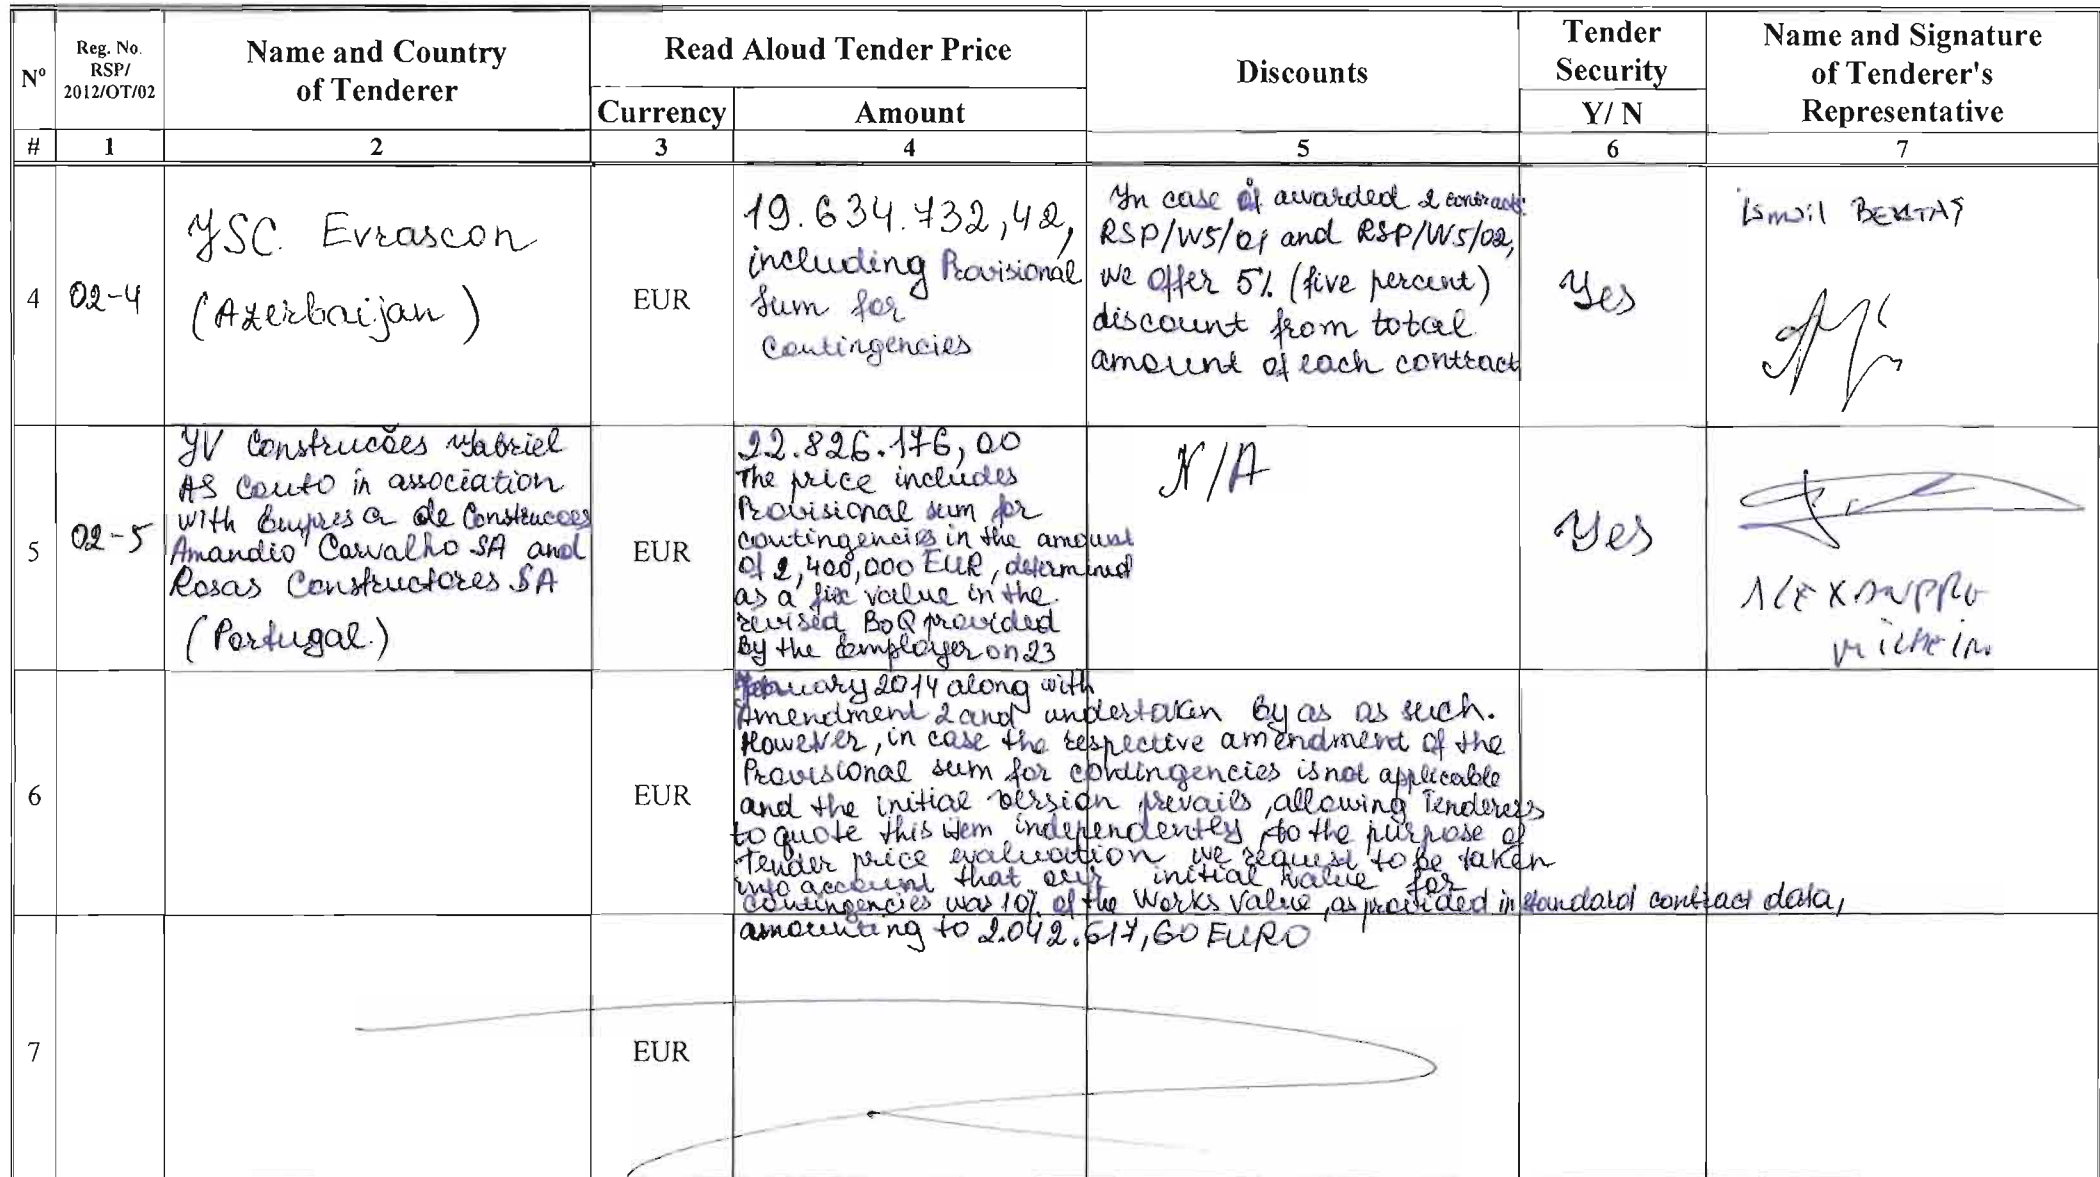 Nº
Reg. No.
RSP/
2012/OT/02
Name and Country
of Tenderer
Read Aloud Tender Price
Currency
Amount
Discounts
Tender
Security
Y/ N
Name and Signature
of Tenderer's
Representative
# 1 2 3 4 5 6 7
4
02-4
JSC. Evrascon
(Azerbaijan)
EUR
19.634.732,42,
including Provisional
Sum for
Contingencies
In case of awarded 2 contracts:
RSP/W5/01 and RSP/W5/02,
we offer 5% (five percent)
discount from total
amount of each contract
Yes
ismail BEKTAŞ
5
02-5
JV Construcões Gabriel
AS Couto in association
with de Construcoes
Amandio Carvalho SA and
Rosas Constructores SA
(Portugal.)
EUR
22.826.176,00
The price includes
Provisional sum for
contingencies in the amount
of 2,400,000 EUR, determined
as a fix value in the
revised BoQ provided
by the Employer on 23
N/A
Yes
6
EUR
February 2014 along with
Amendment 2 and undertaken by as as such.
However, in case the respective amendment of the
Provisional sum for contingencies is not applicable
and the initial version prevails, allowing Tenderers
to quote this item independently, to the purpose of
Tender price evaluation we request to be taken
into account that our initial value for
contingencies was 10% of the Works Value, as provided in standard contract data,
amounting to 2.042.617,60 EURO
7
EUR